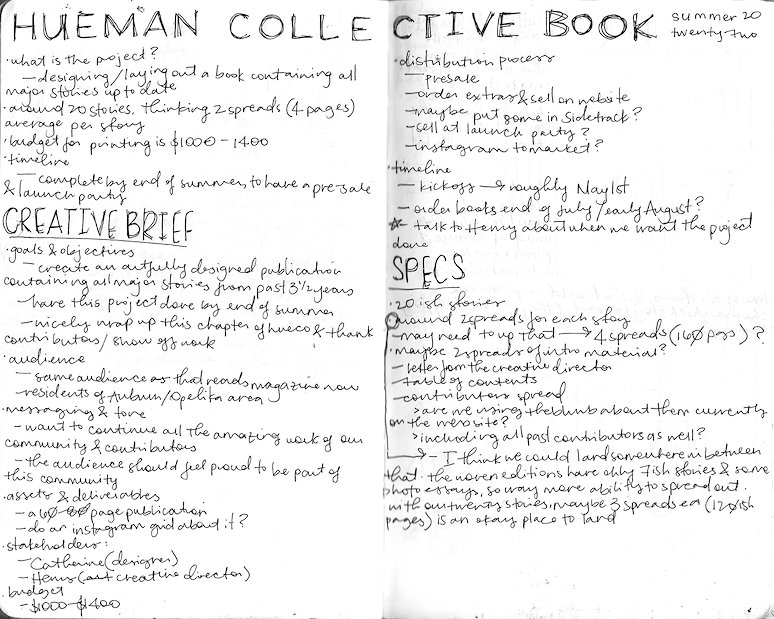 HUEMAN COLLECTIVE BOOK
summer 20
twenty-two
·what is the project?
— designing/laying out a book containing all
major stories up to date
·around 20 stories, thinking 2 spreads (4 pages)
average per story
·budget for printing is $1000 - 1400
·timeline
— complete by end of summer, to have a pre-sale
& launch party
CREATIVE BRIEF
·goals & objectives
— create an artfully designed publication
containing all major stories from past 3 1/2 years
— have this project done by end of summer
— nicely wrap up this chapter of hueco & thank
contributors / show off work
·audience
— same audience as that reads magazine now
— residents of Auburn/Opelika area
·messaging & tone
— want to continue all the amazing work of our
community & contributors
— the audience should feel proud to be part of
this community
·assets & deliverables
— a 60-80 page publication
— do an instagram grid about it?
·stakeholders:
— Catherine (designer)
— Henry (creative director)
·budget
— $1000-$1400
·distribution process
— presale
— order extras & sell on website
— maybe put some in Sidetrack?
— sell at launch party?
— instagram to market?
·timeline
— kickoff → roughly May 1st
— order books end of July/early August?
☆ talk to Henry about when we want the project
done
SPECS
·20 ish stories
around 2 spreads for each story
— may need to up that → 4 spreads (160 pgs)?
·maybe 2 spreads of intro material?
— letter from the creative director
— table of contents
— contributors spread
> are we using the blurb about them currently
on the website?
> including all past contributors as well?
— I think we could land somewhere in between
that. the noven editions have only 7ish stories & some
photo essays, so way more ability to spread out.
with our twenty stories, maybe 3 spreads ea (120ish
pages) is an okay place to land